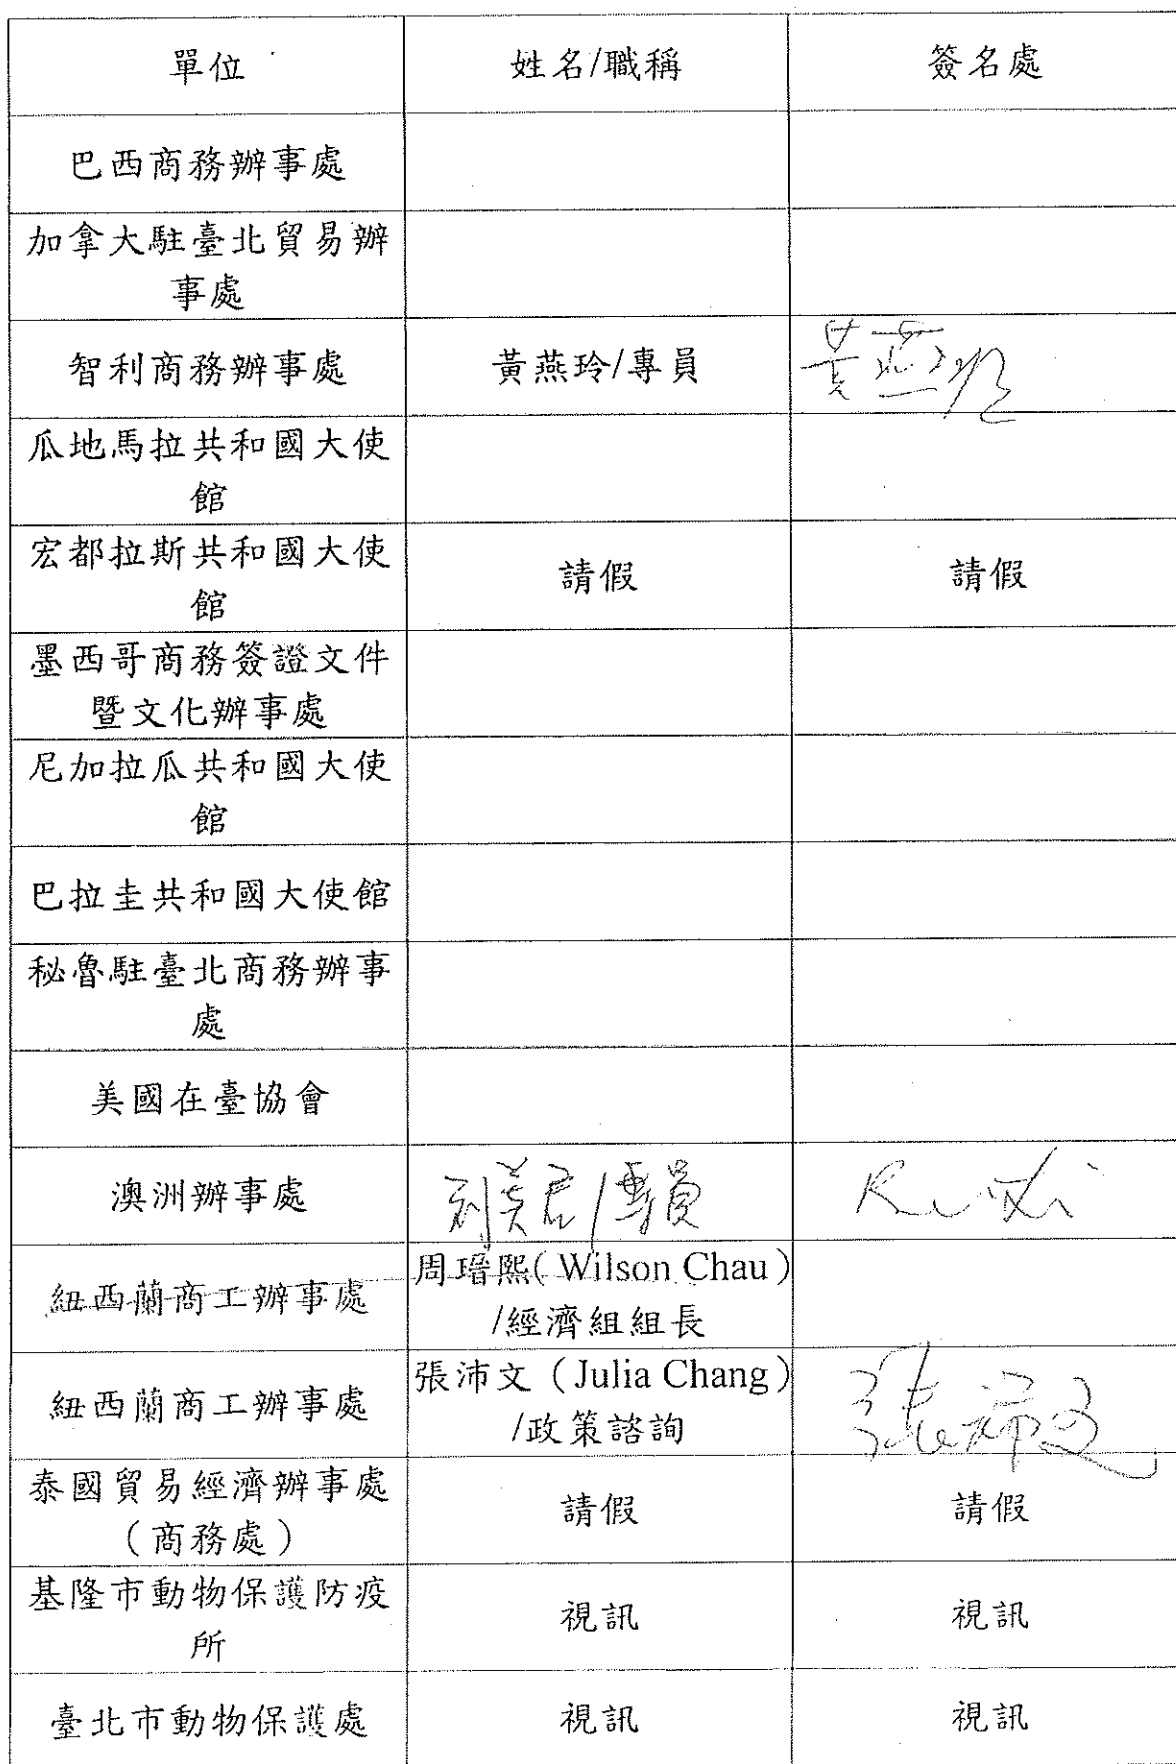 單位 姓名/職稱 簽名處
巴西商務辦事處
加拿大駐臺北貿易辦
事處
智利商務辦事處 黃燕玲/專員 黃燕玲
瓜地馬拉共和國大使
館
宏都拉斯共和國大使
館 請假 請假
墨西哥商務簽證文件
暨文化辦事處
尼加拉瓜共和國大使
館
巴拉圭共和國大使館
秘魯駐臺北商務辦事
處
美國在臺協會
澳洲辦事處 劉美君/專員
紐西蘭商工辦事處 周瑨熙(Wilson Chau)
/經濟組組長
紐西蘭商工辦事處 張沛文(Julia Chang)
/政策諮詢 張沛文
泰國貿易經濟辦事處
(商務處) 請假 請假
基隆市動物保護防疫
所 視訊 視訊
臺北市動物保護處 視訊 視訊